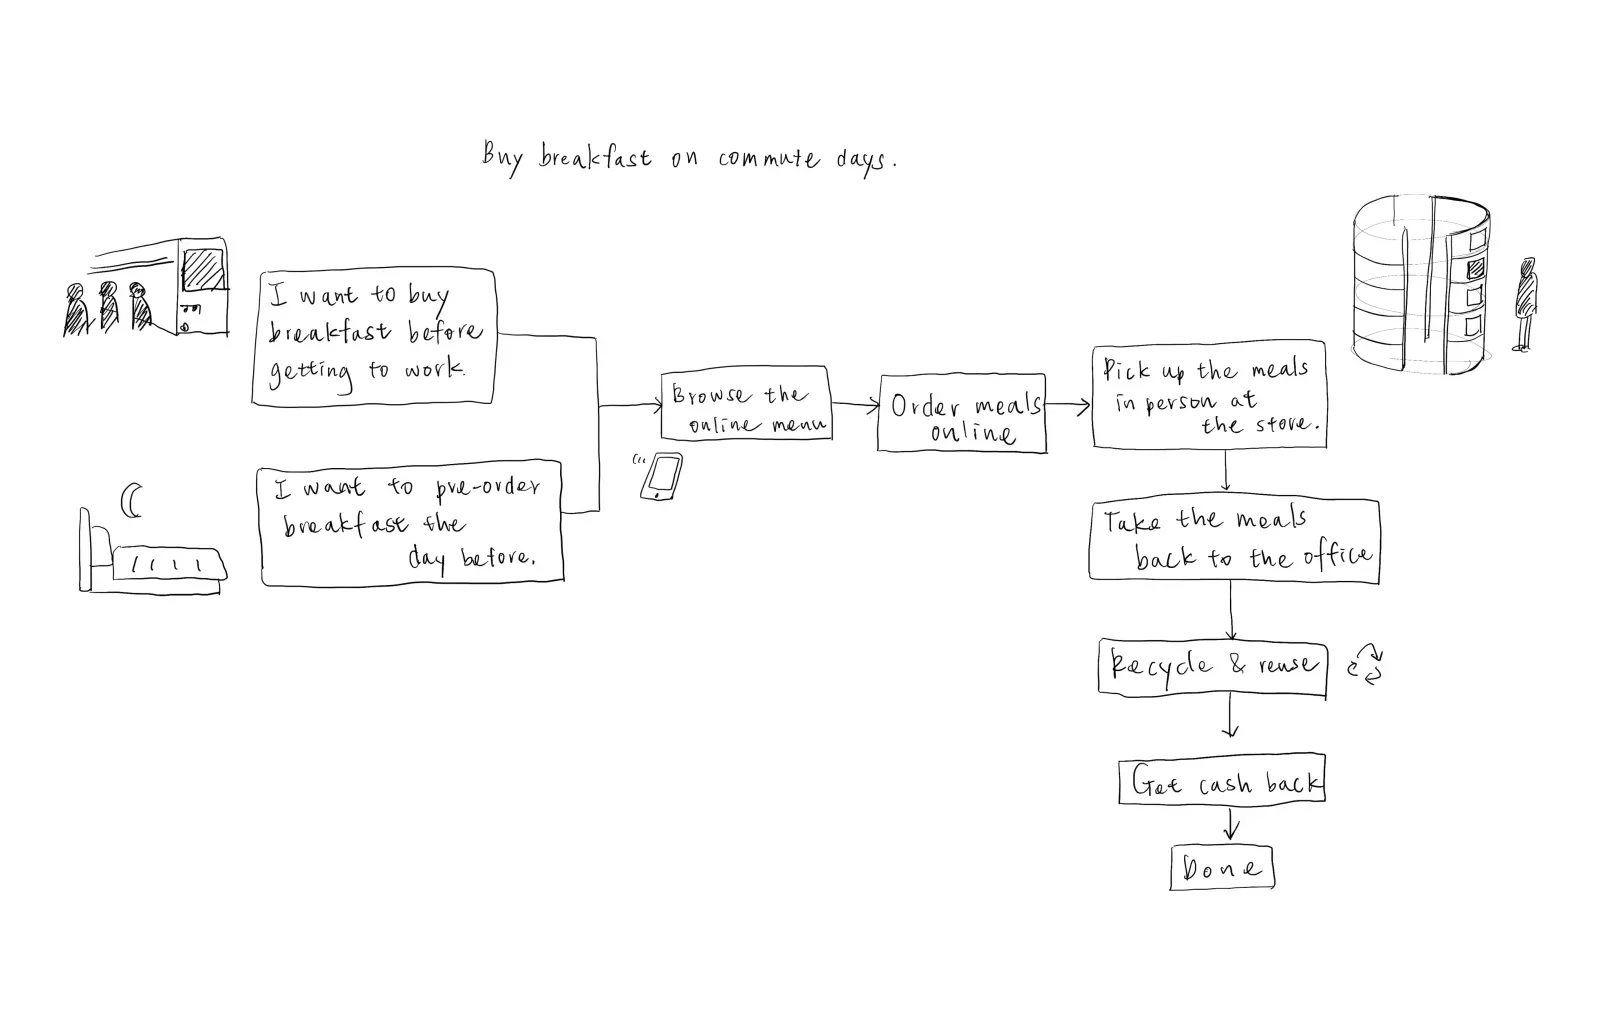 Buy breakfast on commute days.
I want to buy
breakfast before
getting to work.
I want to pre-order
breakfast the
day before.
Browse the
online menu
Order meals
online
Pick up the meals
in person at
the store.
Take the meals
back to the office
Recycle & reuse
Get cash back
Done